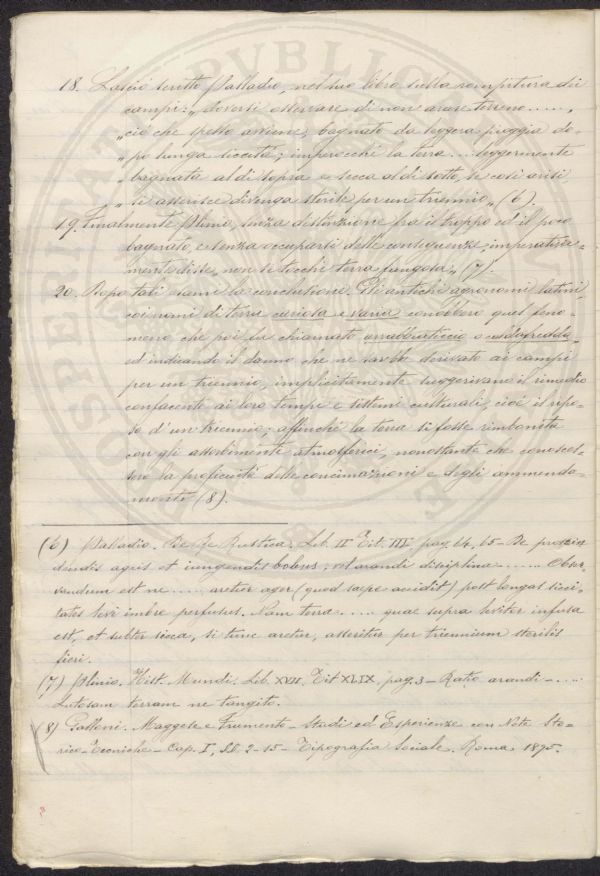 18. Lasciò scritto Palladio, nel suo libro sulla rompitura dei
campi: „doversi osservare di non arare terreno ......,
„ciò che spesso avviene, bagnato da leggera pioggia do-
„po lunga siccità; imperocchè la terra .... leggermente
„bagnata al di sopra e secca al di sotto, se così arisi,
„si asserisce divenga sterile per un triennio„ (6).
19. Finalmente Plinio, senza distinzione fra il troppo ed il poco
bagnato, e senza occuparsi delle conseguenze, imperativa-
mente disse, non si tocchi terra fangosa„ (7).
20. Dopo tali esami la conclusione. Gli antichi agronomi latini
coi nomi di terra cariosa e varia conobbero quel feno-
meno che poi fu chiamato arrabbaticcio o caldafredda
ed indicando il danno che ne sarebbe derivato ai campi
per un triennio, implicitamente suggerivano il rimedio
confacente ai loro tempi e sistemi culturali, cioè il ripo-
so d'un triennio; affinchè la terra si fosse rimbonita
con gli assorbimenti atmosferici, nonostante che conosces-
sero la proficuità delle concimazioni e degli ammenda-
menti (8).
(6) Palladio. De Re Rustica. Lib. II Tit. III pag. 64, 65 - De proscin
dendis agris et iungendis bobus, et arandi disciplina ...... Obser
vandum est ne ..... aretur ager (quod saepe accidit) post longas sicci-
tates levi imbre perfusus. Nam terra ..... quae supra leviter infusa
est, et subter sicca, si tunc aretur, asseritur per triennium sterilis
fieri.
(7) Plinio. Hist. Mundi. Lib. XVII, Tit XLIX, pag. 3 - Ratio arandi - ....
Lutosam terram ne tangito.
(8) Galloni. Maggese e Frumento - Studi ed Esperienze con Note Sto-
rico-Tecniche - Cap. I, §.§. 2-15 - Tipografia Sociale. Roma. 1895.